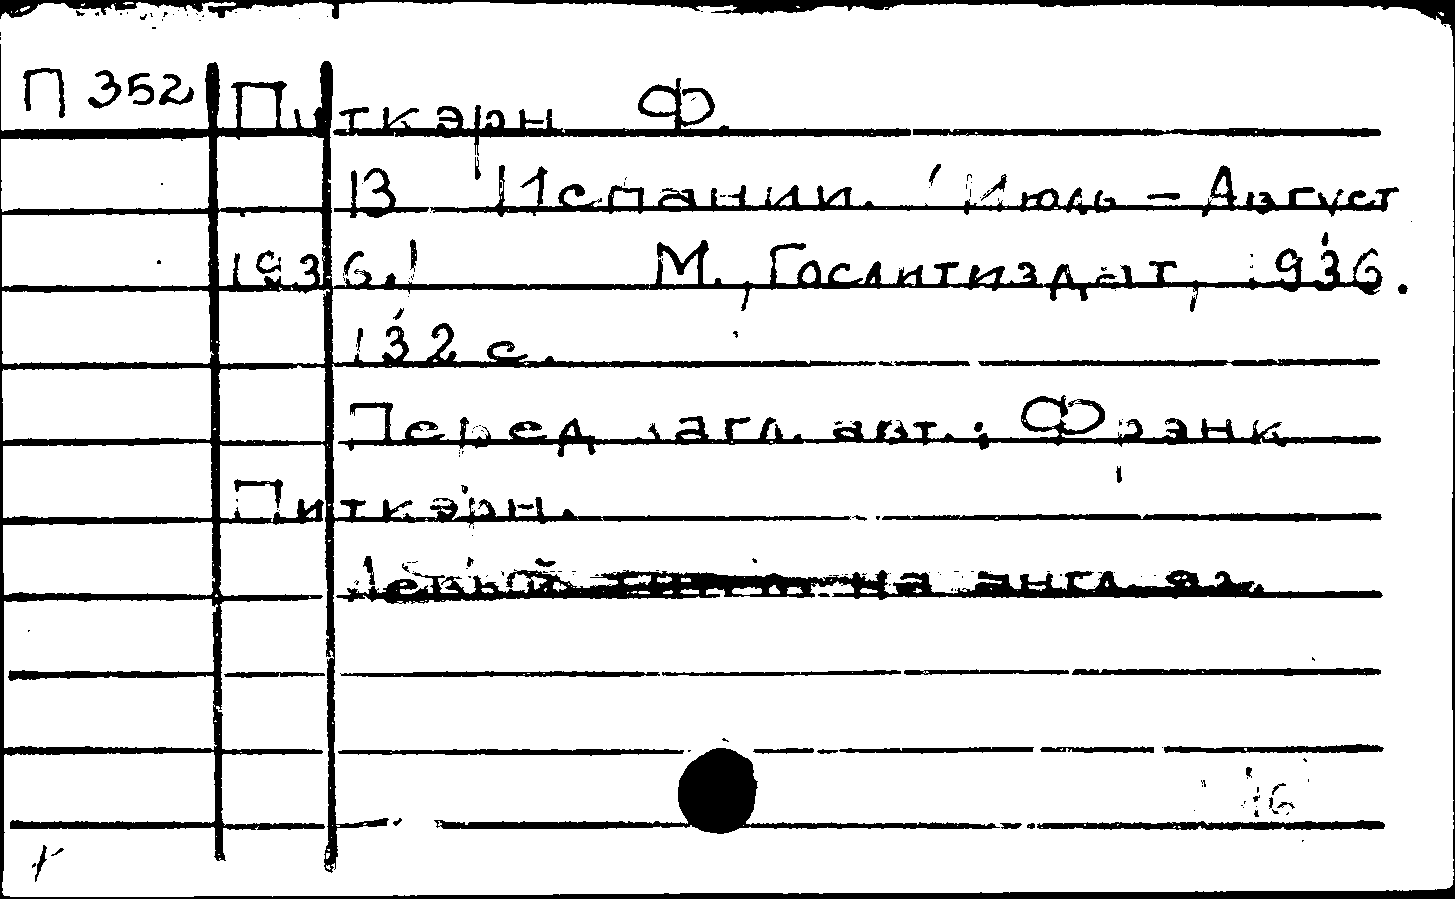 П 352 Питкэрн Ф.
В Испании. (Июль - Август
1936.) М., Гослитиздат, 1936.
132 с.
Перед загл. авт.: Фрэнк
Питкэрн.
Левый титл. на англ. яз.
16